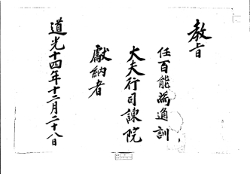 教旨
任百能為通訓
大夫行司諫院
獻納者
道光十四年十二月二十八日